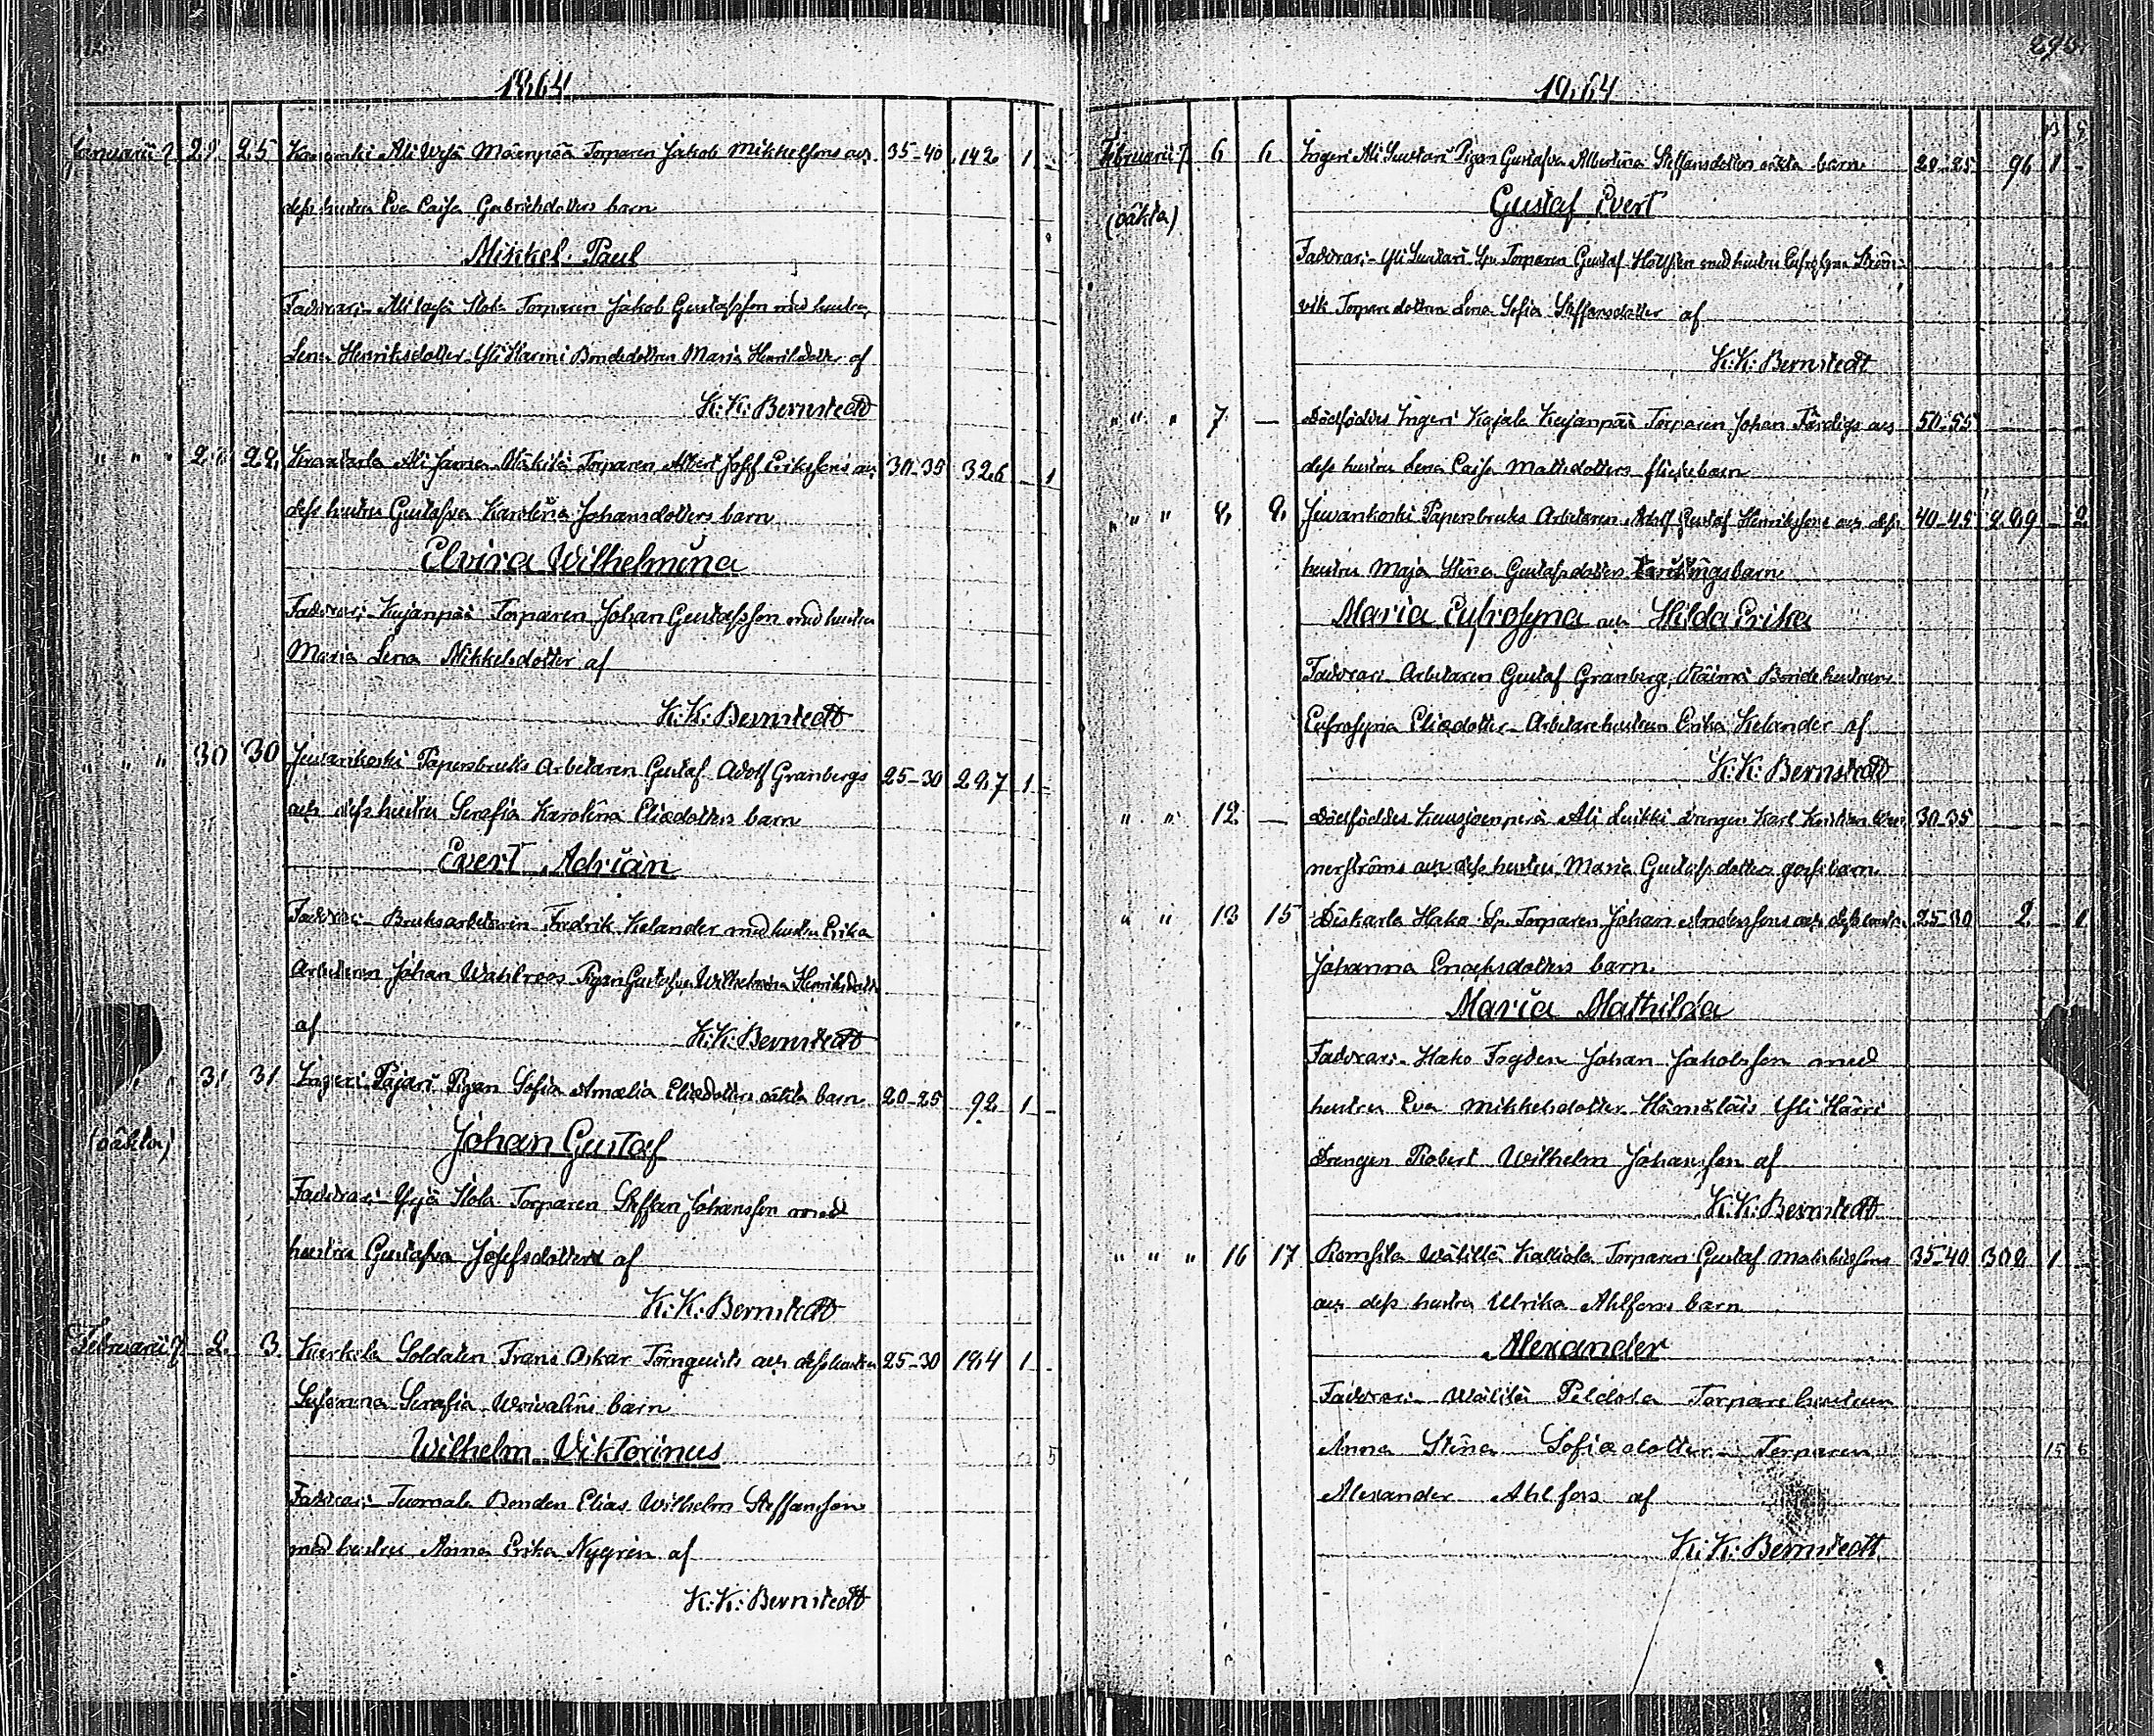 1864
Januarii 25 Torparen Jakob Mikkelsons och 35-40 142 1 -
dess hustru Eva Caisa Gabrielsdotters barn
Mikkel Paul
Faddrar: Torparen Jakob Gustafsson med hustru
Lena Henriksdotter Yli Harmi Bondedottren Maria Henriksdotter af
K: K: Bernstedt
" " " Torparen Albert Josef Erikssons och 30-35 326 - 1
dess hustru Gustafva Karolina Johansdotters barn
Elvira Wilhelmina
Faddrar: Kujanpää Torparen Johan Gustafsson med hustru
Maria Lena Mikkelsdotter af
K: K: Bernstedt
" " " 30 30 Juvankoski Papersbruks Arbetaren Gustaf Adolf Granbergs 25-30 297 1 -
och dess hustru Serafia Karolina Eliædotters barn
Evert Adrian
Faddrar: Bruksarbetaren Fredrik Kelander med hustru Erika
Arbetaren Johan Wahlroos Pigan Gustafva Wilhelmina Henriksdotter
af K: K: Bernstedt
31 31 Ingeri Pajari Pigan Sofia Amalia Eliædotters oäkta barn 20-25 92 1 -
(oäkta)
Johan Gustaf
Faddrar: Torparen Steffan Johansson med
hustru Gustafva Josefsdotter af
K: K: Bernstedt
Februarii 2 3 Kurkela Soldaten Frans Oskar Törnquists och dess hustru 25-30 184 1 -
Susanna Serafia barn
Wilhelm Viktorinus
Faddrar: Tuomala Bonden Elias Wilhelm Steffansson
med hustru Anna Erika Nygrén af
K: K: Bernstedt
1864
Februarii 6 6 Ingeri Ali Suutari Pigan Gustafva Albertina Steffansdotters oäkta barn 20-25 96 1 -
(oäkta)
Gustaf Evert
Faddrar: Yli Suutari Torparen Gustaf med hustru
vik Torparedottren Lena Sofia Steffansdotter af
K: K: Bernstedt
" " " 7 — Dödföddes Ingeri Kujanpää Torparen Johan Färdigs och 50-55
dess hustru Lena Caisa Mattsdotters flickebarn
" " " Juvankoski Papersbruks Arbetaren Adolf Gustaf Henrikssons och dess 299 - 2
hustru Maja Stina Gustafsdotters tvillingsbarn
Maria Eufrosyna och Hilda Erika
Faddrar: Arbetaren Gustaf Granberg, Bondehustrun
Eufrosyna Eliædotter Arbetarehustrun Erika Kelander af
K: K: Bernstedt
" " 12 — Dödföddes Ali Luikki Drengen Karl Kristian 30-35
nerströms och dess hustru Maria Gustafsdotters gossebarn
" " 13 15 Hako Torparen Johan Anderssons och dess hustru 25-30 2 - 1
Johanna Enochsdotters barn
Maria Mathilda
Faddrar: Hako Fogden Johan Jakobsson med
hustru Eva Mikkelsdotter Yli Härri
Drengen Robert Wilhelm Johansson af
K: K: Bernstedt
" " " 16 17 Wälilä Kalliola Torparen Gustaf 35-40 302 1 -
och dess hustru Ulrika Ahlfors barn
Alexander
Faddrar: Wälilä Peldola Torparehustrun
Anna Stina Sofiædotter Torparen 15 6
Alexander Ahlfors af
K: K: Bernstedt